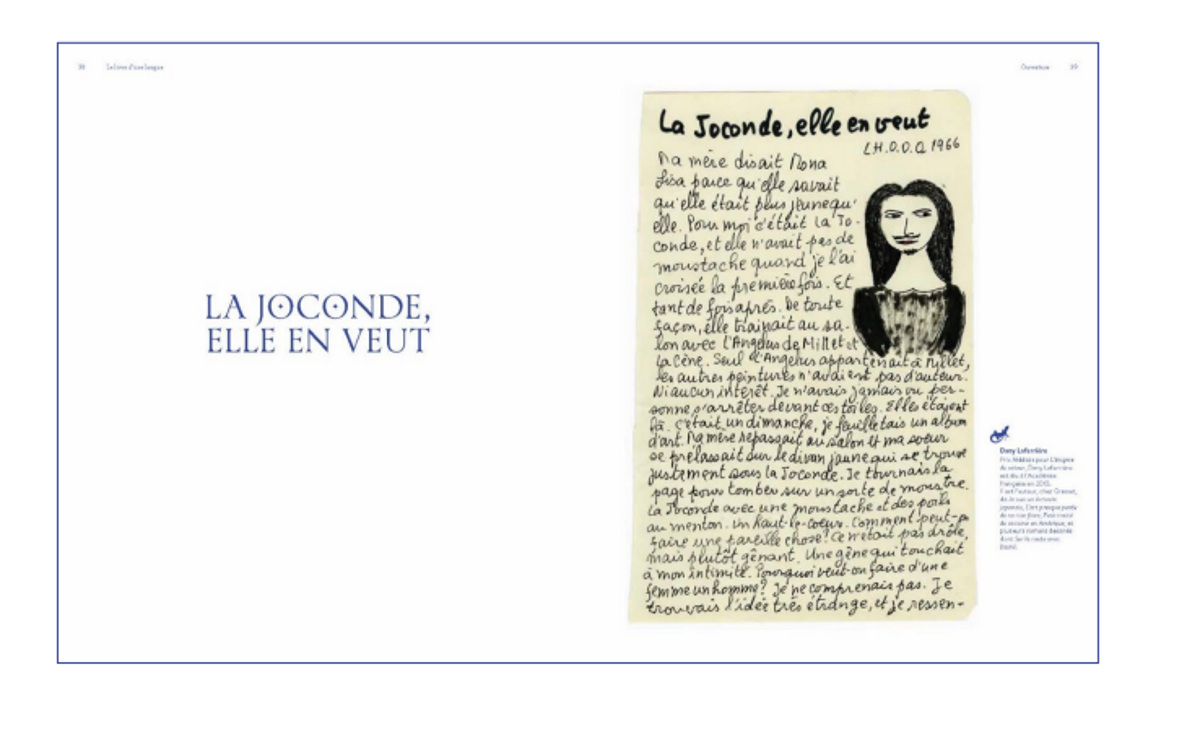 38 Le livre d'une langue
Ouverture 39
LA JOCONDE,
ELLE EN VEUT
La Joconde, elle en veut
L.H.O.O.Q 1966
Ma mère disait Mona
Lisa parce qu'elle savait
qu'elle était plus jeune qu'
elle. Pour moi c'était la Jo-
conde, et elle n'avait pas de
moustache quand je l'ai
croisée la première fois. Et
tant de fois après. De toute
façon, elle traînait au sa-
lon avec l'Angelus de Millet et
la Cène. Seul l'Angelus appartenait à Millet,
les autres peintures n'avaient pas d'auteur.
Ni aucun intérêt. Je n'avais jamais vu per-
sonne s'arrêter devant ces toiles. Elles étaient
là. C'était un dimanche, je feuilletais un album
d'art. Ma mère repassait au salon et ma soeur
se prélassait sur le divan jaune qui se trouve
justement sous la Joconde. Je tournais la
page pour tomber sur un sorte de monstre.
La Joconde avec une moustache et des poils
au menton. Un haut-le-coeur. Comment peut-on
faire une pareille chose? Ce n'était pas drôle,
mais plutôt gênant. Une gêne qui touchait
à mon intimité. Pourquoi veut-on faire d'une
femme un homme? Je ne comprenais pas. Je
trouvais l'idée très étrange, et je ressen-
Dany Laferrière
Prix Médicis pour L'énigme
du retour, Dany Laferrière
est élu à l'Académie
française en 2013.
Il est l'auteur, chez Grasset,
de Je suis un écrivain
japonais, L'art presque perdu
de ne rien faire,
plusieurs romans dessinés
dont Sur la route avec
Bashō.